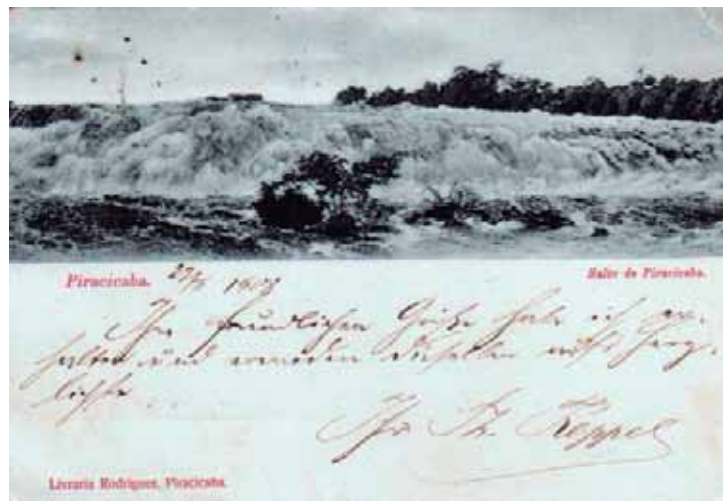 Piracicaba. 27/5 190
Salto de Piracicaba.
Ihre freundlichen Grüße habe ich er-
halten und erwiedere dieselben aufs herz-
lichste.
Ihr Th. Keppel
Livraria Rodrigues, Piracicaba.